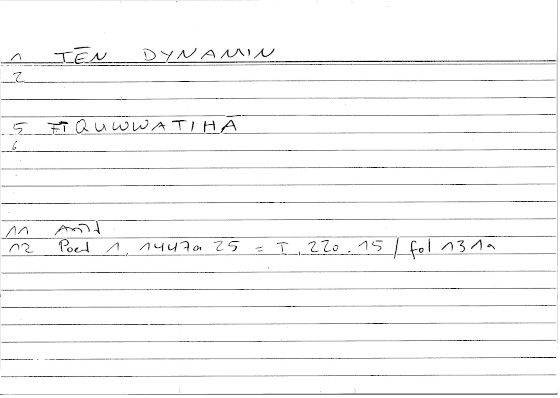 1 TĒN DYNAMIN
2
5 FĪ QUWWATIHĀ
6
11 Arist
12 Poet 1, 1447a 25 = T, 220.15 / fol 131a